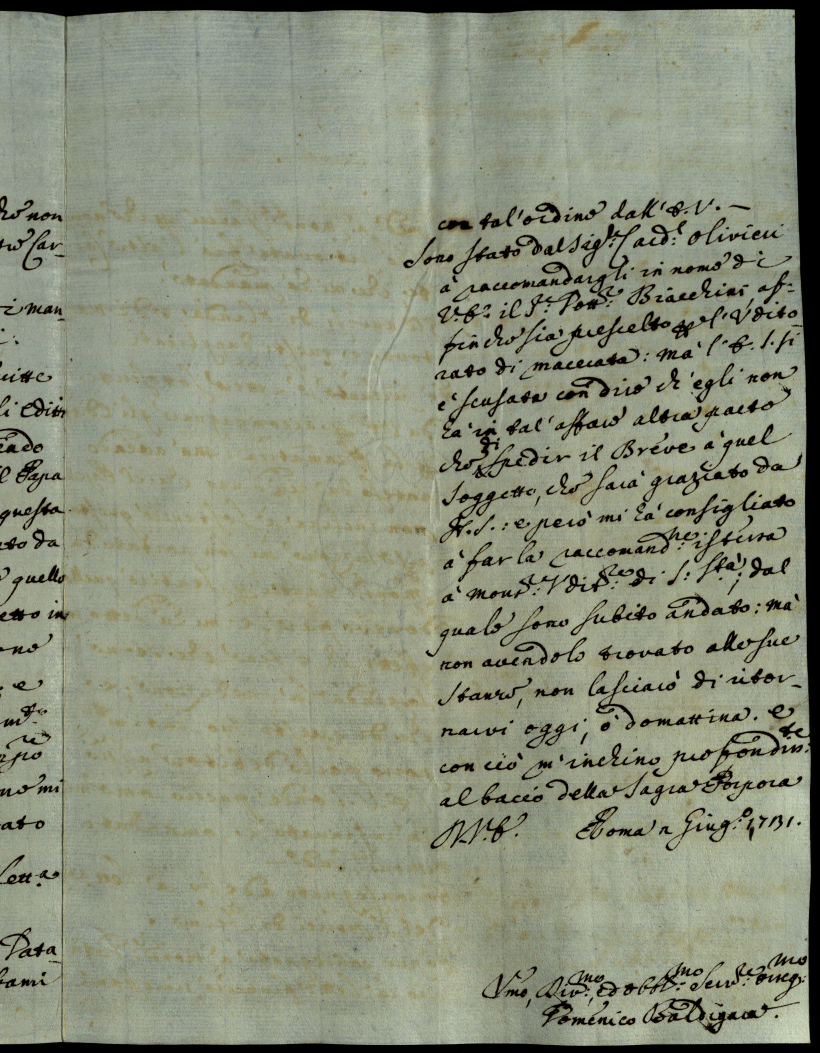 non
Car-
man-
Edit
Papa
questa
ato da
quello
etto in
e
mi
ato
Lett.a
Data
con tal' ordine dall' E.V. —
Sono stato dal Sig.r Card.l Olivieri
à raccomandargli in nome di
V.E. il S.r Dott.re Biacchini, af-
finche sia prescelto per l' Vdito
rato di Macerata: mà l' E.S. si
è scusata con dire ch' egli non
hà in tal' affare altra parte
che di spedir il Breve à quel
soggetto, che sarà graziato da
N.S.: e però mi hà consigliato
à far la raccomand.ne istessa
à Mons.r Vdit.re di S. Stà, dal
quale sono subito andato: mà
non avendolo trovato alle sue
Stanze, non lasciarò di ritor-
narvi oggi, ò domattina. e
con ciò m' inchino profondm.te
al bacio della Sagra Porpora
D.V.E. Roma 2 Giug.o 1731.
Vmo, Div.mo, ed obbl.mo Serv.re osseq.mo
Domenico Baldigara.